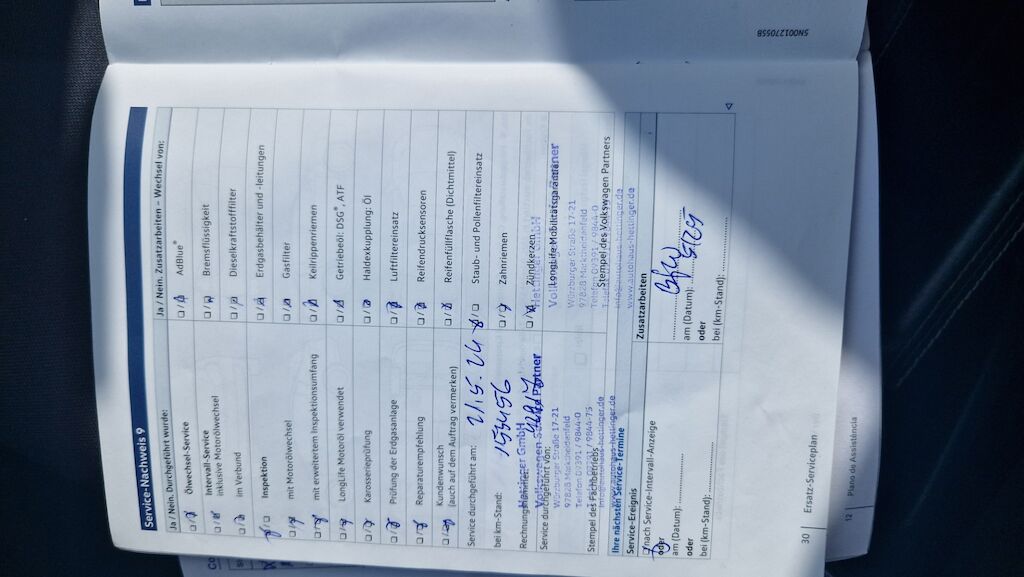 Service-Nachweis 9
Ja / Nein. Durchgeführt wurde:
Ölwechsel-Service
Intervall-Service
inklusive Motorölwechsel
im Verbund
Inspektion
mit Motorölwechsel
mit erweitertem Inspektionsumfang
LongLife Motoröl verwendet
Karosserieprüfung
Prüfung der Erdgasanlage
Reparaturempfehlung
Kundenwunsch
(auch auf dem Auftrag vermerken)
Service durchgeführt am:
bei km-Stand: 153456
Rechnungsnummer:
Service durchgeführt von:
Hettinger GmbH
Volkswagen Service Partner
Würzburger Straße 17-21
97828 Marktheidenfeld
Telefon 09391 / 9844-0
Stempel des Fachbetriebs
Ja / Nein. Zusatzarbeiten – Wechsel von:
AdBlue®
Bremsflüssigkeit
Dieselkraftstofffilter
Erdgasbehälter und -leitungen
Gasfilter
Keilrippenriemen
Getriebeöl: DSG®, ATF
Haldexkupplung: Öl
Luftfiltereinsatz
Reifendrucksensoren
Reifenfüllflasche (Dichtmittel)
Staub- und Pollenfiltereinsatz
Zahnriemen
Zündkerzen
LongLife-Mobilitätsgarantie
Hettinger GmbH
Würzburger Straße 17-21
97828 Marktheidenfeld
Telefon 09391 / 9844-0
Stempel des Volkswagen Partners
info@autohaus-hettinger.de
www.autohaus-hettinger.de
Ihre nächsten Service-Termine
Service-Ereignis
nach Service-Intervall-Anzeige
oder
am (Datum):
oder
bei (km-Stand):
Zusatzarbeiten
am (Datum): 5/25
oder
bei (km-Stand):
30 Ersatz-Serviceplan
12 Plano de Assistência
5N0012705SB